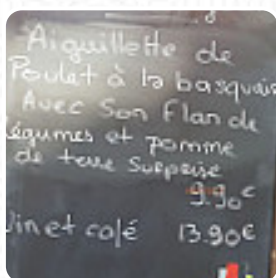 Aiguillette de
Poulet à la basquais
Avec Son Flan de
légumes et pomme
de terre Surprise
9.90€
Vin et café 13.90€